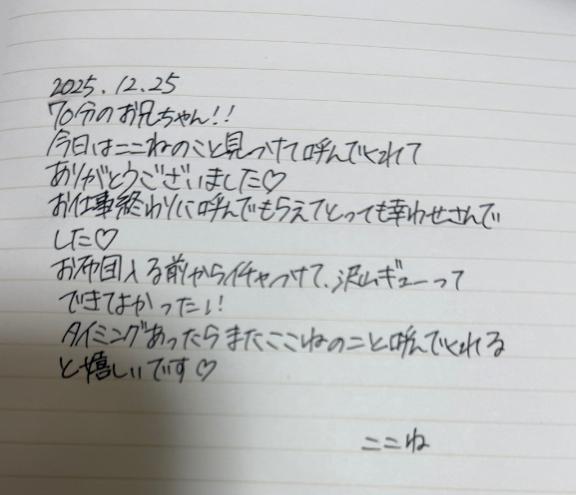 2025.12.25
70分のお兄ちゃん!!
今日はここねのこと見つけて呼んでくれて
ありがとうございました♡
お仕事終わりに呼んでもらえてとっても幸わせさんで
した♡
お布団入る前からイチャつけて、沢山ギューって
できてよかったし!
タイミングあったらまたここねのこと呼んでくれる
と嬉しいです♡
ここね